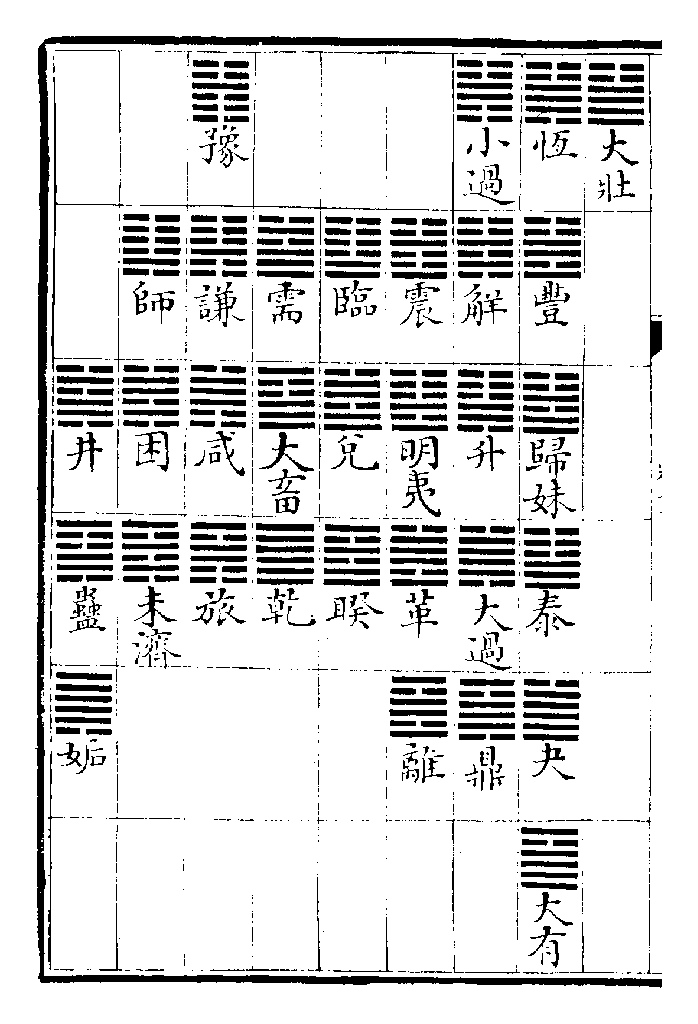 大壯
恆 豐 歸妹 泰 夬 大有
小過 解 升 大過 鼎
震 明夷 革 離
臨 兌 睽
需 大畜 乾
豫 謙 咸 旅
師 困 未濟
井 蠱 姤